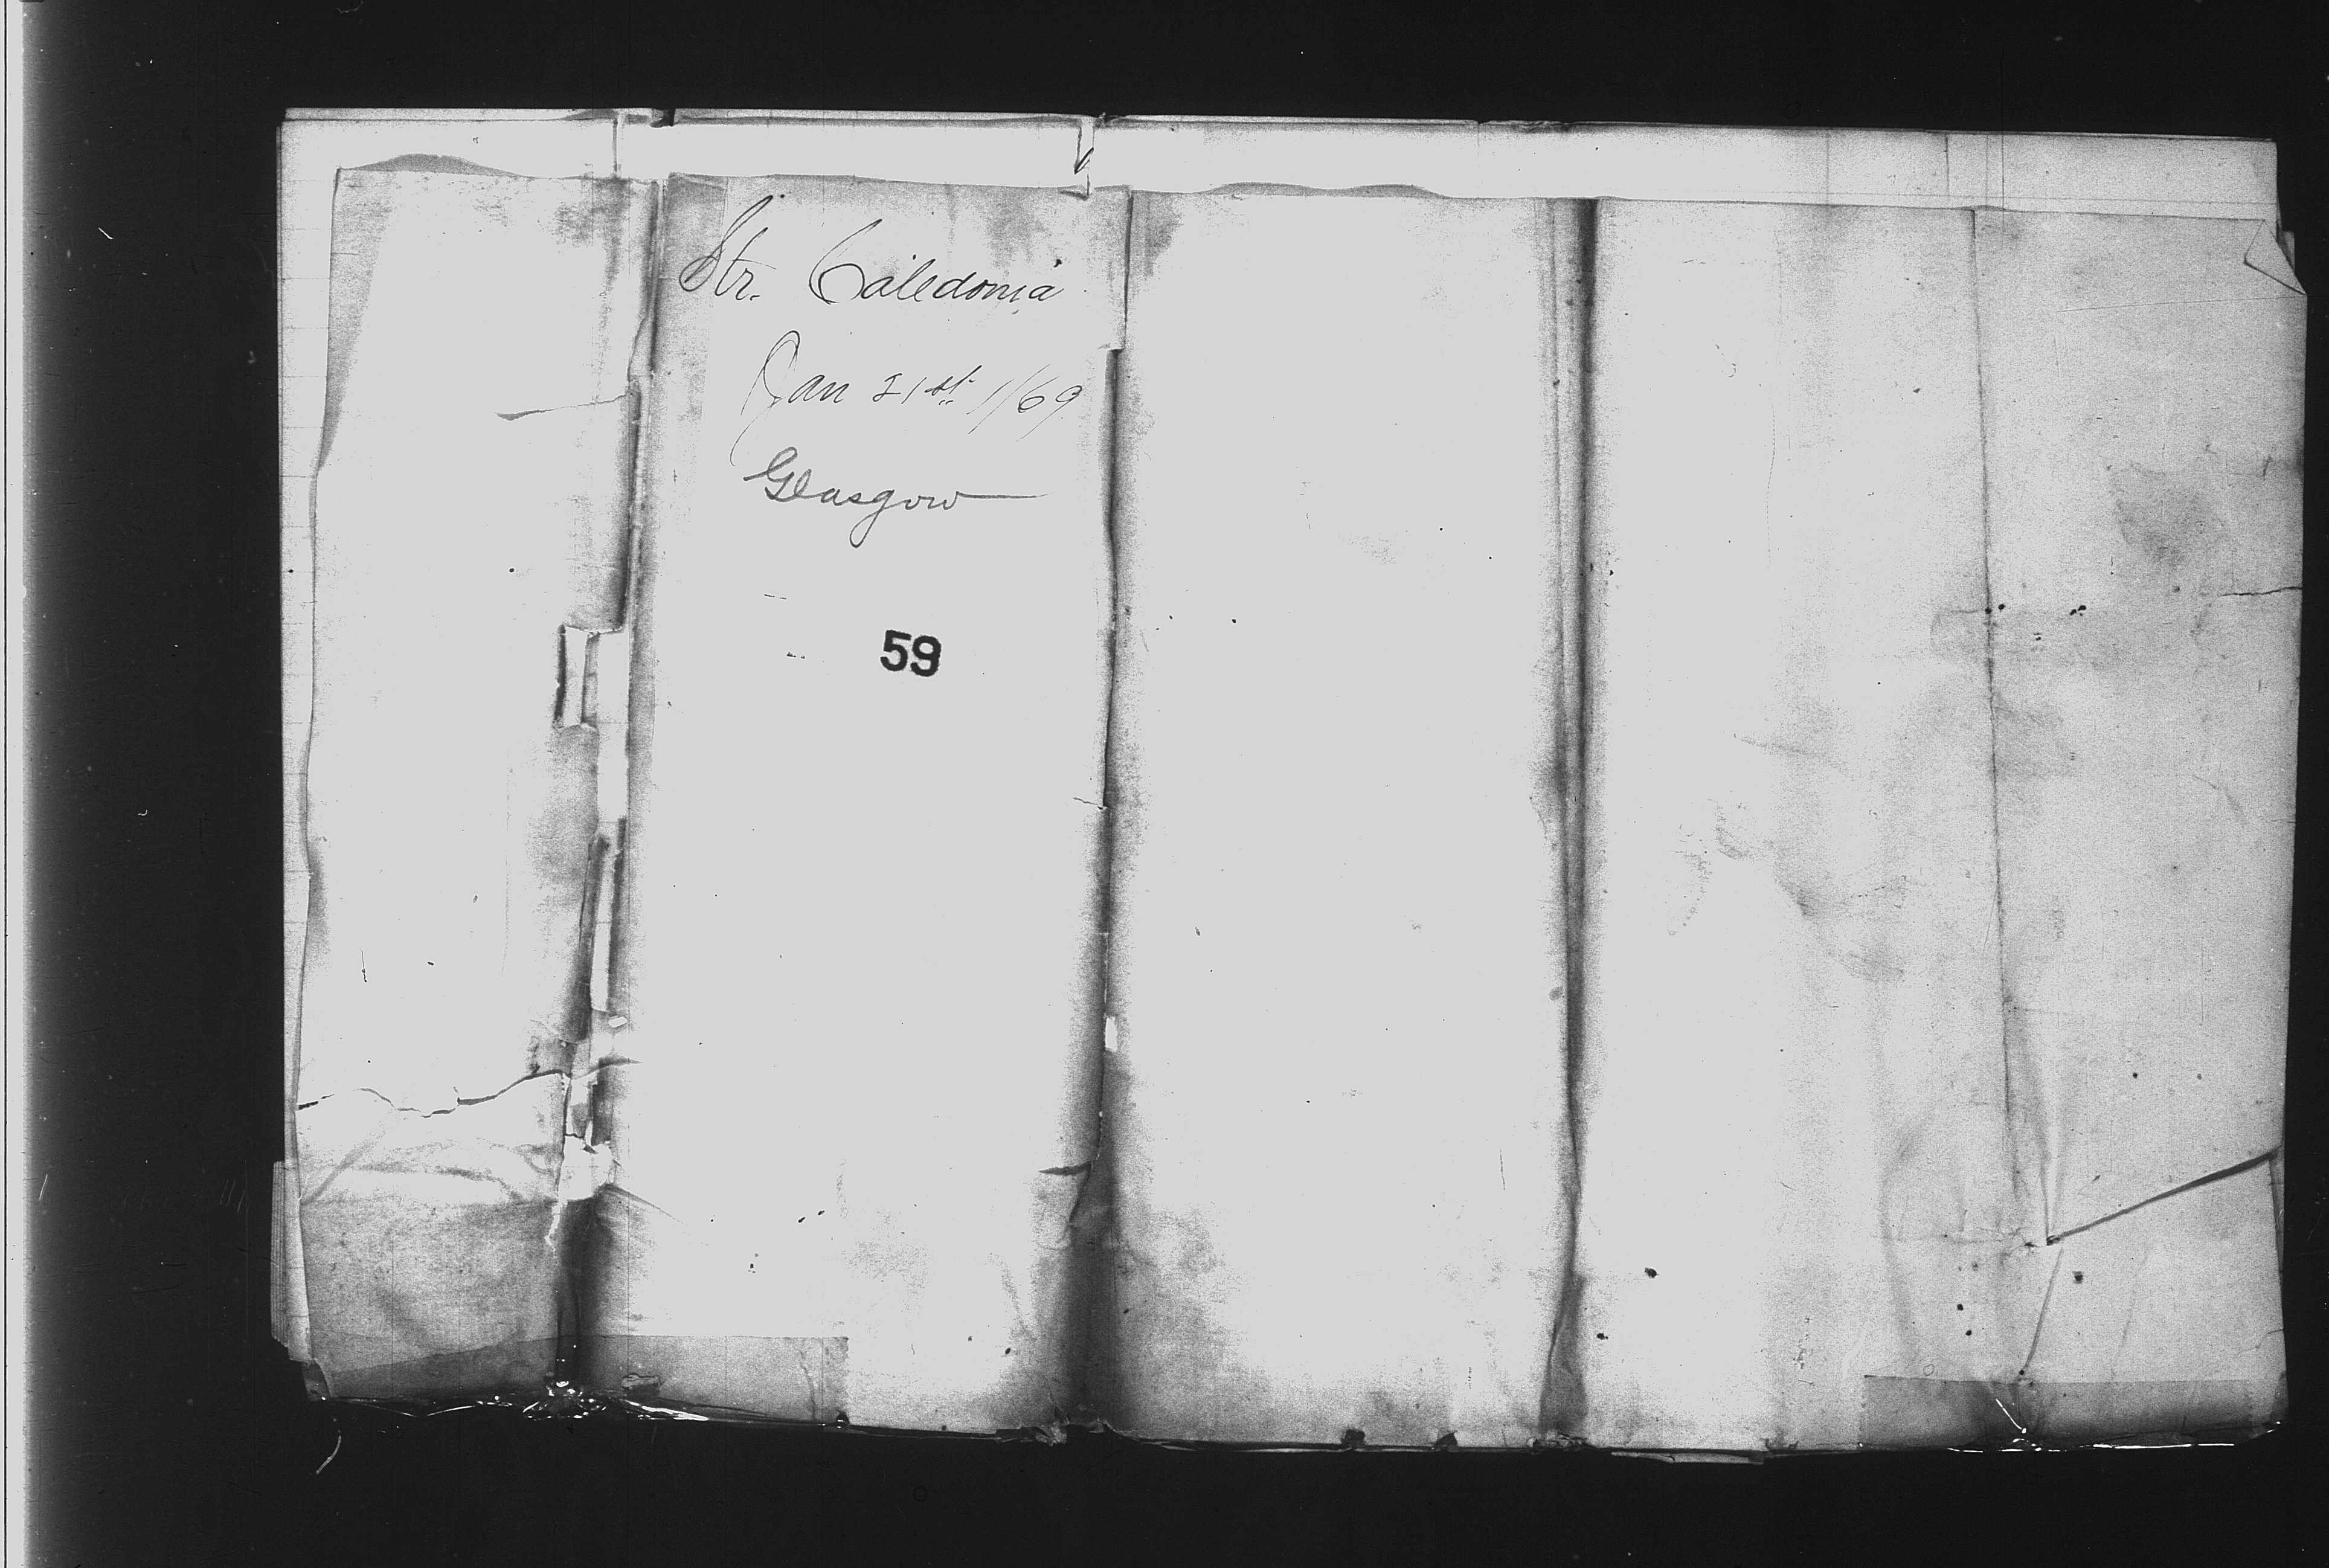 Str. Caledonia
Jan 21st 1/69
Glasgow
59